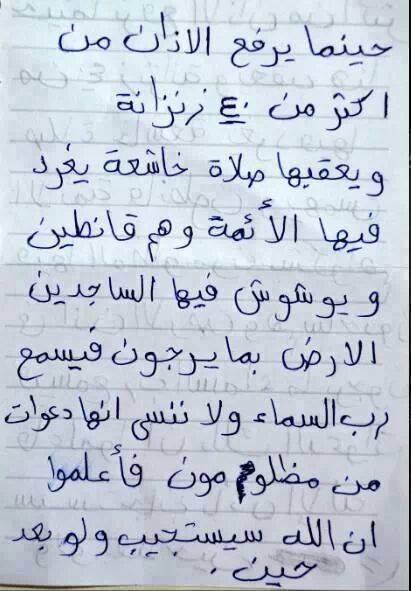 حينما يرفع الاذان من
اكثر من ٤٠ زنزانة
ويعقبها صلاة خاشعة يغرد
فيها الأئمة وهم قانطين
ويوشوش فيها الساجدين
الارض بما يرجون فيسمع
رب السماء ولا ننسى انها دعوات
من مظلومون فأعلموا
ان الله سيستجيب ولو بعد
حين .